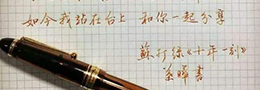 如今我站在台上 和你一起分享
蘇打綠《十年一刻》